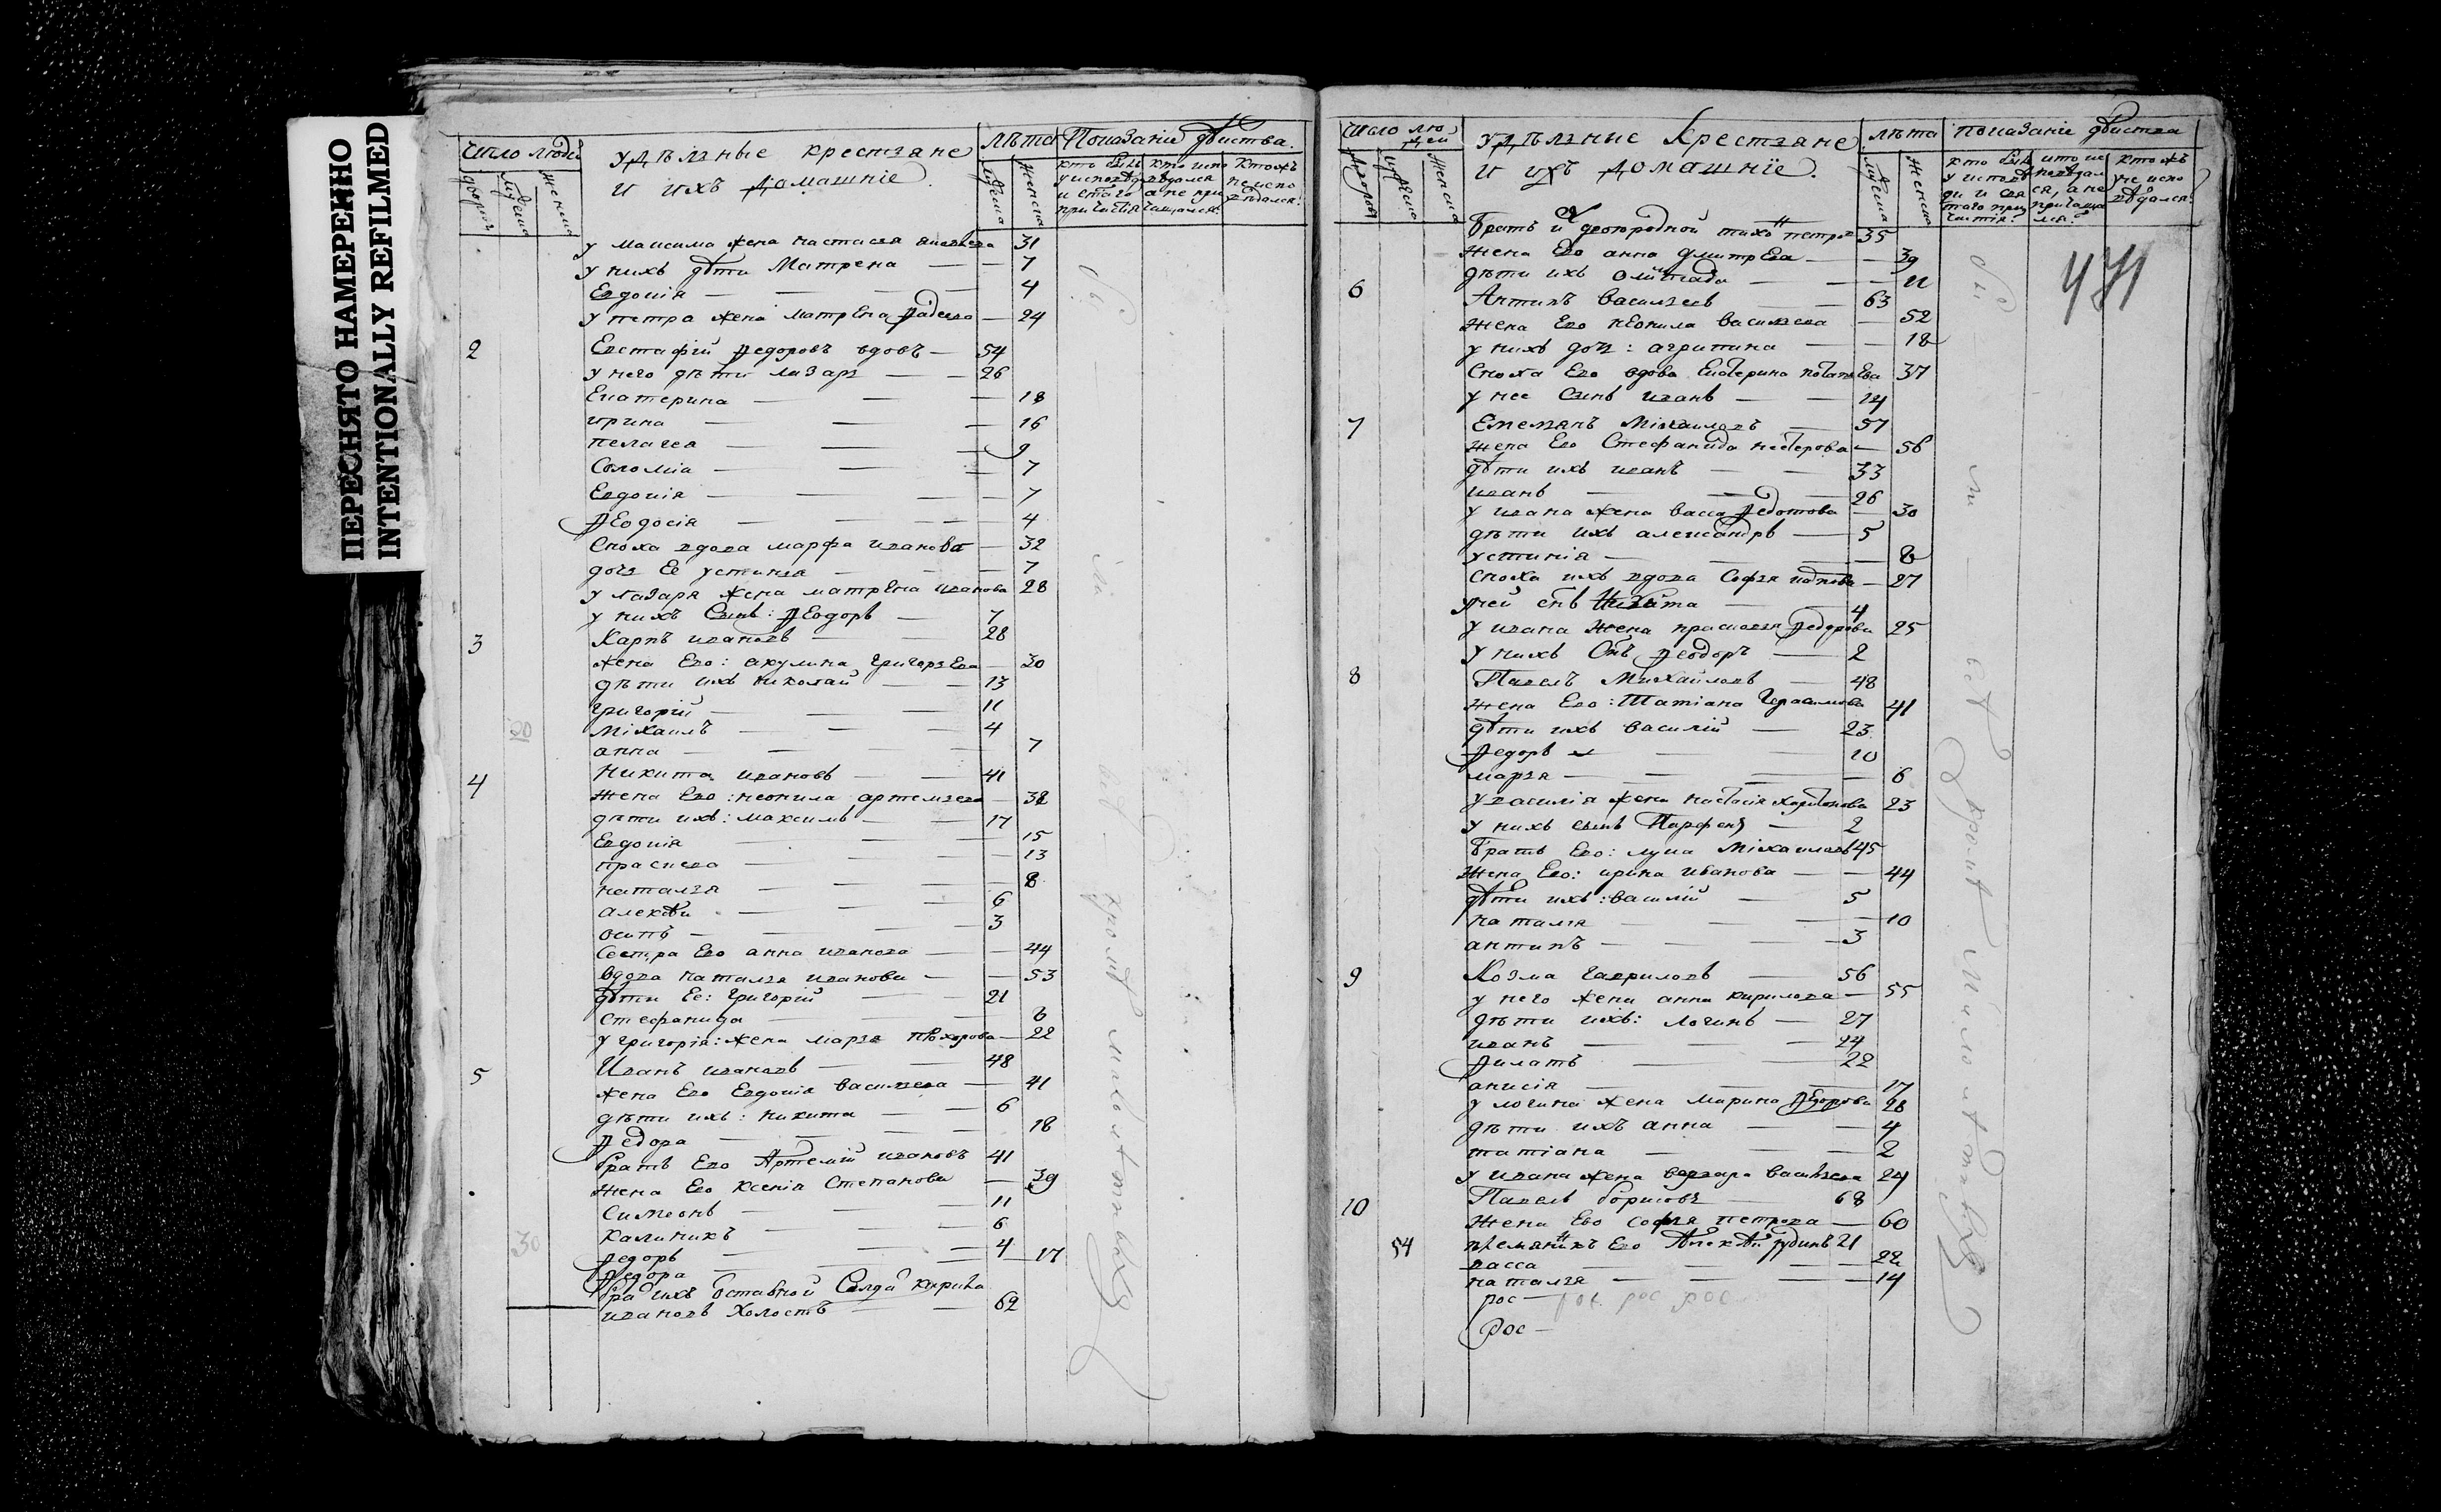 ПЕРЕСНЯТО НАМЕРЕННО
INTENTIONALLY REFILMED
число людей
удѣлзные крестзяне
и ихъ домашніе.
лѣта
Показаніе дѣйства.
дворов
мужеска
женска
мужеска
женска
у максима жена настасзя 31
у нихъ дѣти Матрена — — 7
Евдокія — — — 4
у петра жена матрена — 24
2 Евстафій Ѳедоровъ вдовъ — 54
у него дѣти лазарз — — 26
Екатерина — — — 18
ирина — — — 16
пелагея — — — 9
Соломіа — — — 7
Евдокія — — — 7
Ѳеодосія — — — 4
Сноха вдова марфа иванова — 32
дочз Ее устинза — — — 7
у лазаря жена матрена иванова 28
у нихъ Сынъ: Ѳеодоръ — 7
3 Карпъ ивановъ — — 28
жена Его: акулина григорзева — 30
дѣти ихъ николай — — 13
Григорій — — — 11
Міхаилъ — — — 4
анна — — — 7
4 Никита ивановъ — — 41
жена Его: неонила артемзева — 38
дѣти ихъ: максимъ — — 17
Евдокія — — — 15
праскева — — — 13
наталзя — — — 8
алексѣй — — — 6
осипъ — — — 3
Сестра Его анна иванова — 44
вдова наталзя иванова — — 53
дѣти Ее: Григорій — — 21
стефанида — — — 8
у григорія: жена марзя прохорова — 22
5 Иванъ ивановъ — — 48
жена Его Евдокія васизева — 41
дѣти ихъ: никита — — 6
Ѳедора — — — 18
братъ Его Артемій ивановъ 41
жена Его Ксенія Степанова — 39
Симеонъ — — — 11
Калиникъ — — — 6
Ѳедоръ — — — 4
Ѳедора — — — 17
бра ихъ отставной Салда кирила
ивановъ Холостъ — 62
20
30
число людей
удѣлзные Крестзяне
и ихъ домашніе.
лѣта
показаніе дѣйства
дворов
мужеска
женска
мужеска
женска
471
Братъ и двоюродной тихонъ петров 35
жена Его анна дмитрева — — 39
дѣти ихъ — — 11
6 Антипъ васизевъ — 63
жена Его неонила васизева — 52
у нихъ дочз: агрипина — — 18
Сноха Его вдова Екатерина 37
у нее Сынъ иванъ — — 14
7 Емемянъ Міхаиловъ — 57
жена Его Стефанида нестерова — 56
дѣти ихъ иванъ — — 33
иванъ — — 26
у ивана жена васса Ѳедотова — 30
дѣти ихъ александръ — 5
устинія — — — 8
Сноха ихъ вдова Софзя — 27
у ней снъ Никита — — 4
у ивана жена прасковзя Ѳедорова 25
у нихъ Снъ Ѳеодоръ — 2
8 Павелъ Михайловъ — 48
жена Его: Татіана Герасимова 41
дѣти ихъ василій — 23
Ѳедоръ — — — 10
марзя — — — 6
у василія жена настасія харитонова 23
у нихъ сынъ Парфенъ — 2
Братъ Его: лука Міхаиловъ 45
жена Его: ирина иванова — — 44
дѣти ихъ: василій — 5
наталзя — — — 10
антипъ — — — 3
9 Козма гавриловъ — 56
у него жена анна кирилова — 55
дѣти ихъ: логинъ — 27
иванъ — — — 24
Ѳилатъ — — 22
анисія — — — 17
у логина жена марина Ѳедорова 28
дѣти ихъ анна — — 4
татіана — — — 2
у ивана жена варвара васизева 24
10 Павелъ борисовъ — 68
жена Его Софзя петрова — 60
54 племяникъ Его Алексѣй 21
васса — — — 22
наталзя — — — 14
рос — рос рос рос
рос —